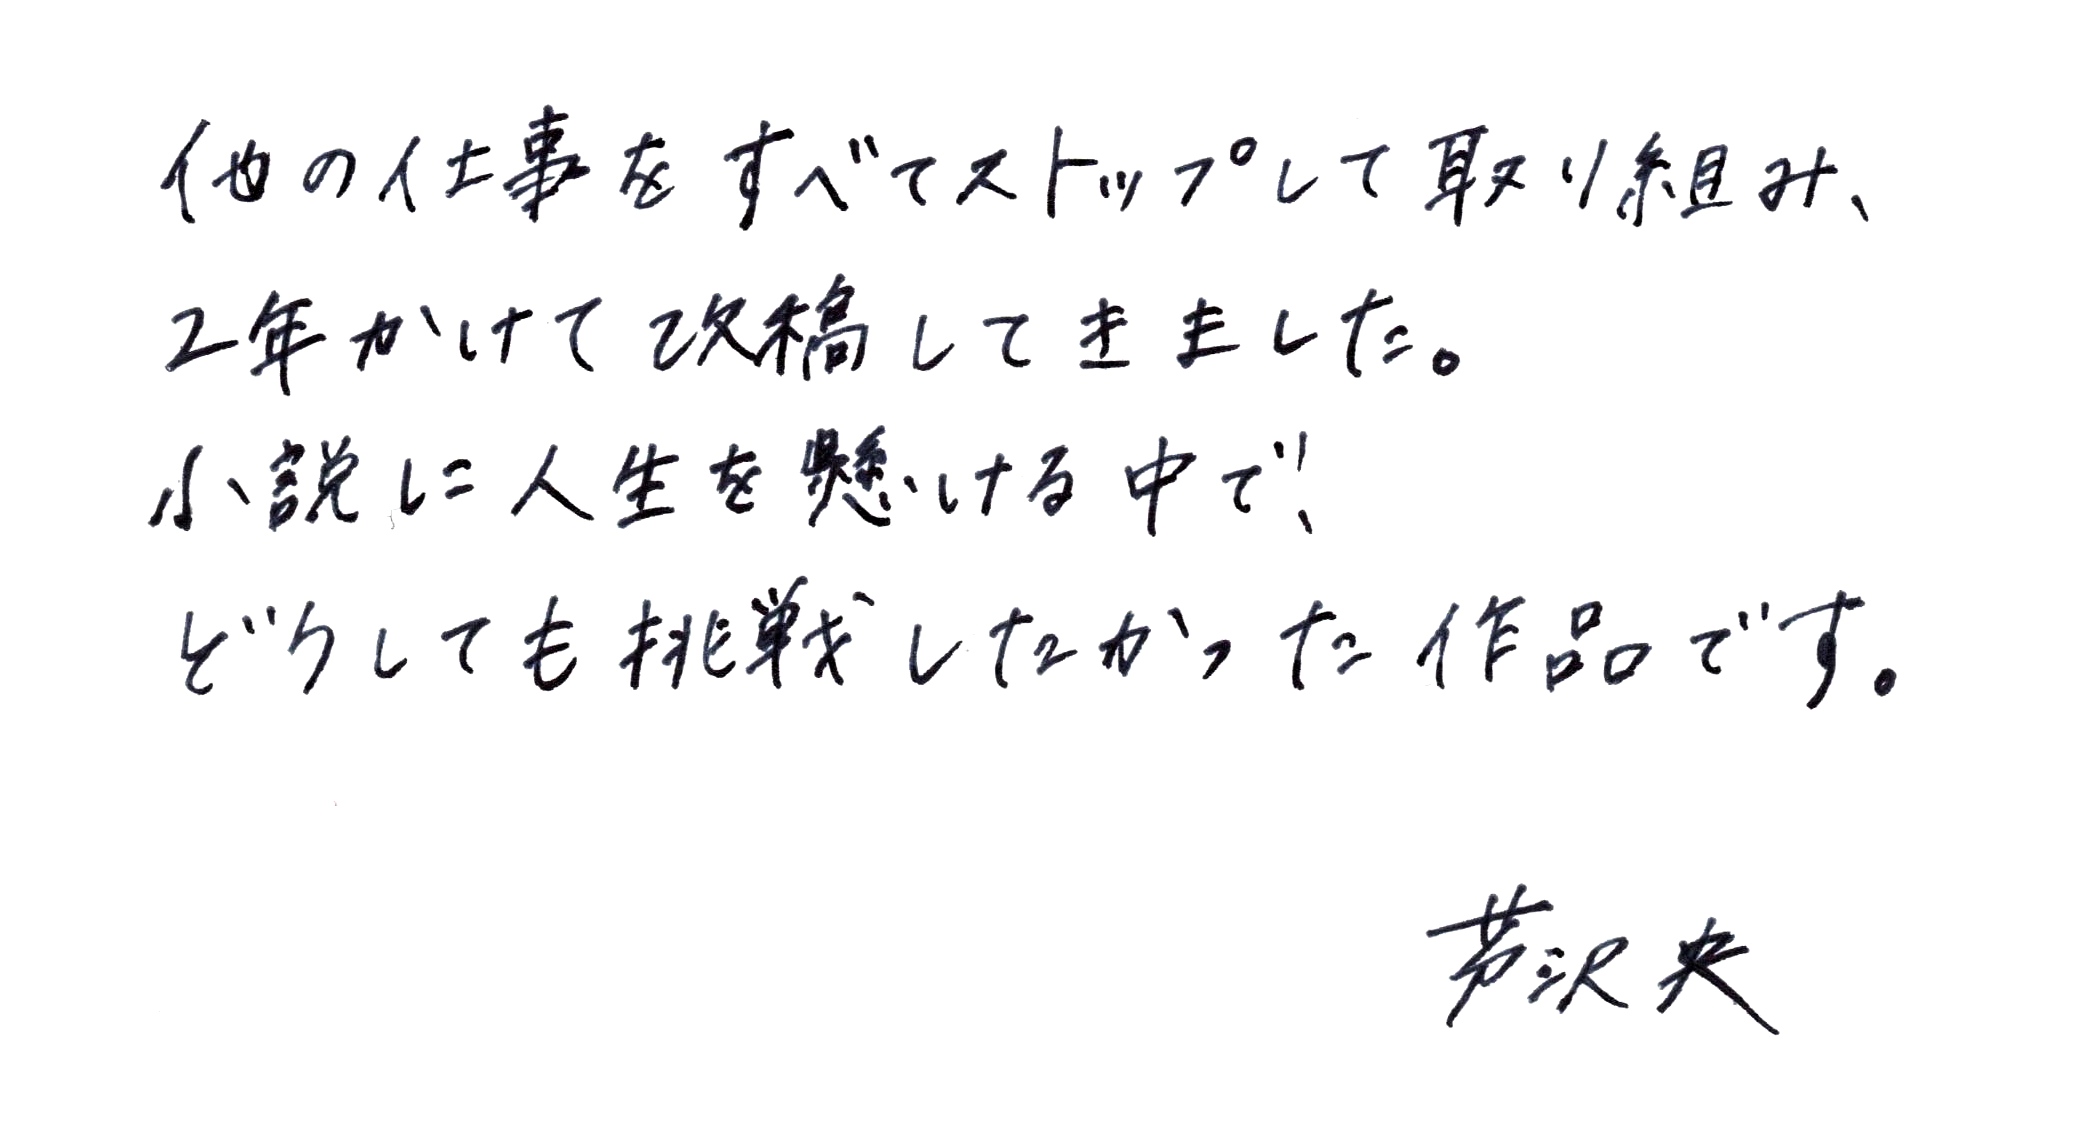 他の仕事をすべてストップして取り組み、
2年かけて改稿してきました。
小説に人生を懸ける中で、
どうしても挑戦したかった作品です。
芦沢央